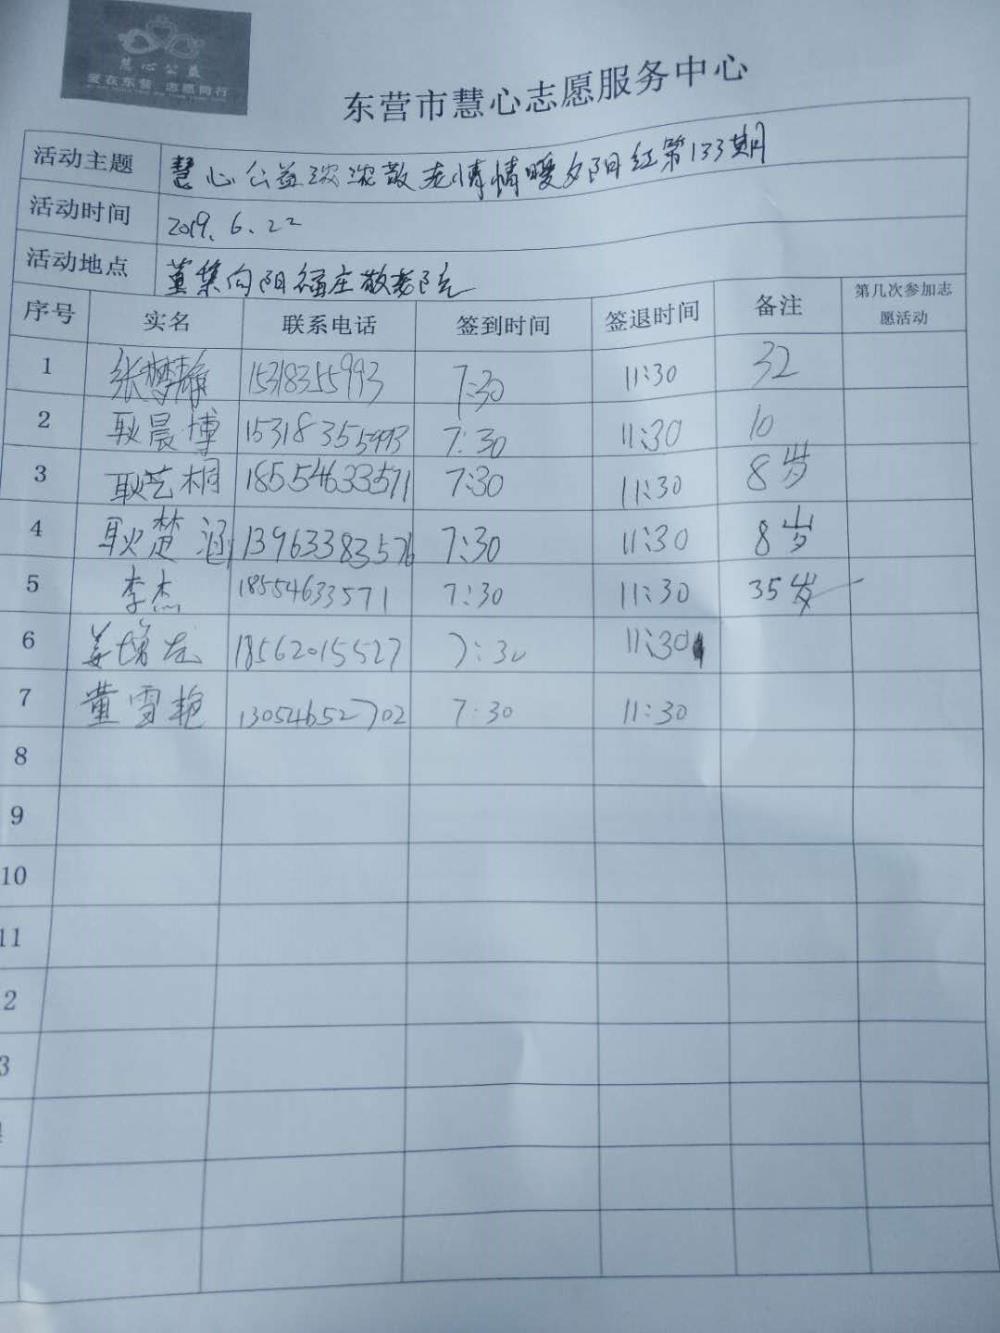 慧心公益
爱在东营 志愿同行
东营市慧心志愿服务中心
活动主题 慧心公益浓浓敬老情情暖夕阳红第133期
活动时间 2019.6.22
活动地点 董集向阳福庄敬老院
序号 实名 联系电话 签到时间 签退时间 备注 第几次参加志愿活动
1 张梦静 15318355993 7:30 11:30 32
2 耿晨博 15318355993 7:30 11:30 10
3 耿艺桐 18554633571 7:30 11:30 8岁
4 耿楚涵 13963383576 7:30 11:30 8岁
5 李杰 18554633571 7:30 11:30 35岁
6 姜 18562015527 7:30 11:30
7 董雪艳 13054652702 7:30 11:30
8
9
10
11
2
3